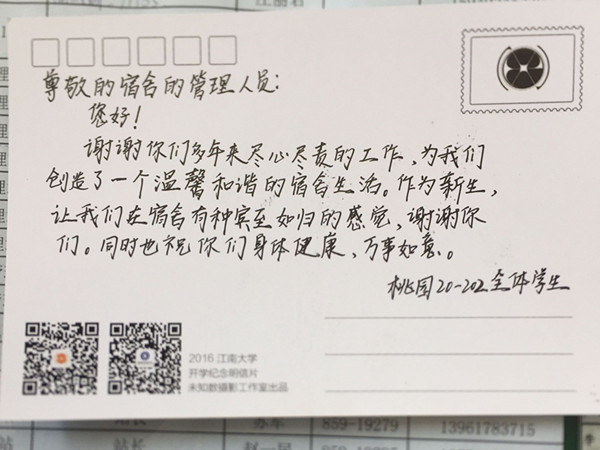 尊敬的宿舍的管理人员:
您好!
谢谢你们多年来尽心尽责的工作,为我们
创造了一个温馨和谐的宿舍生活。作为新生,
让我们在宿舍有种宾至如归的感觉,谢谢你
们。同时也祝你们身体健康,万事如意。
桃园20-202全体学生
2016 江南大学
开学纪念明信片
未知数摄影工作室出品
站长
苏军
859-19279
13961783715
站长
859-19328